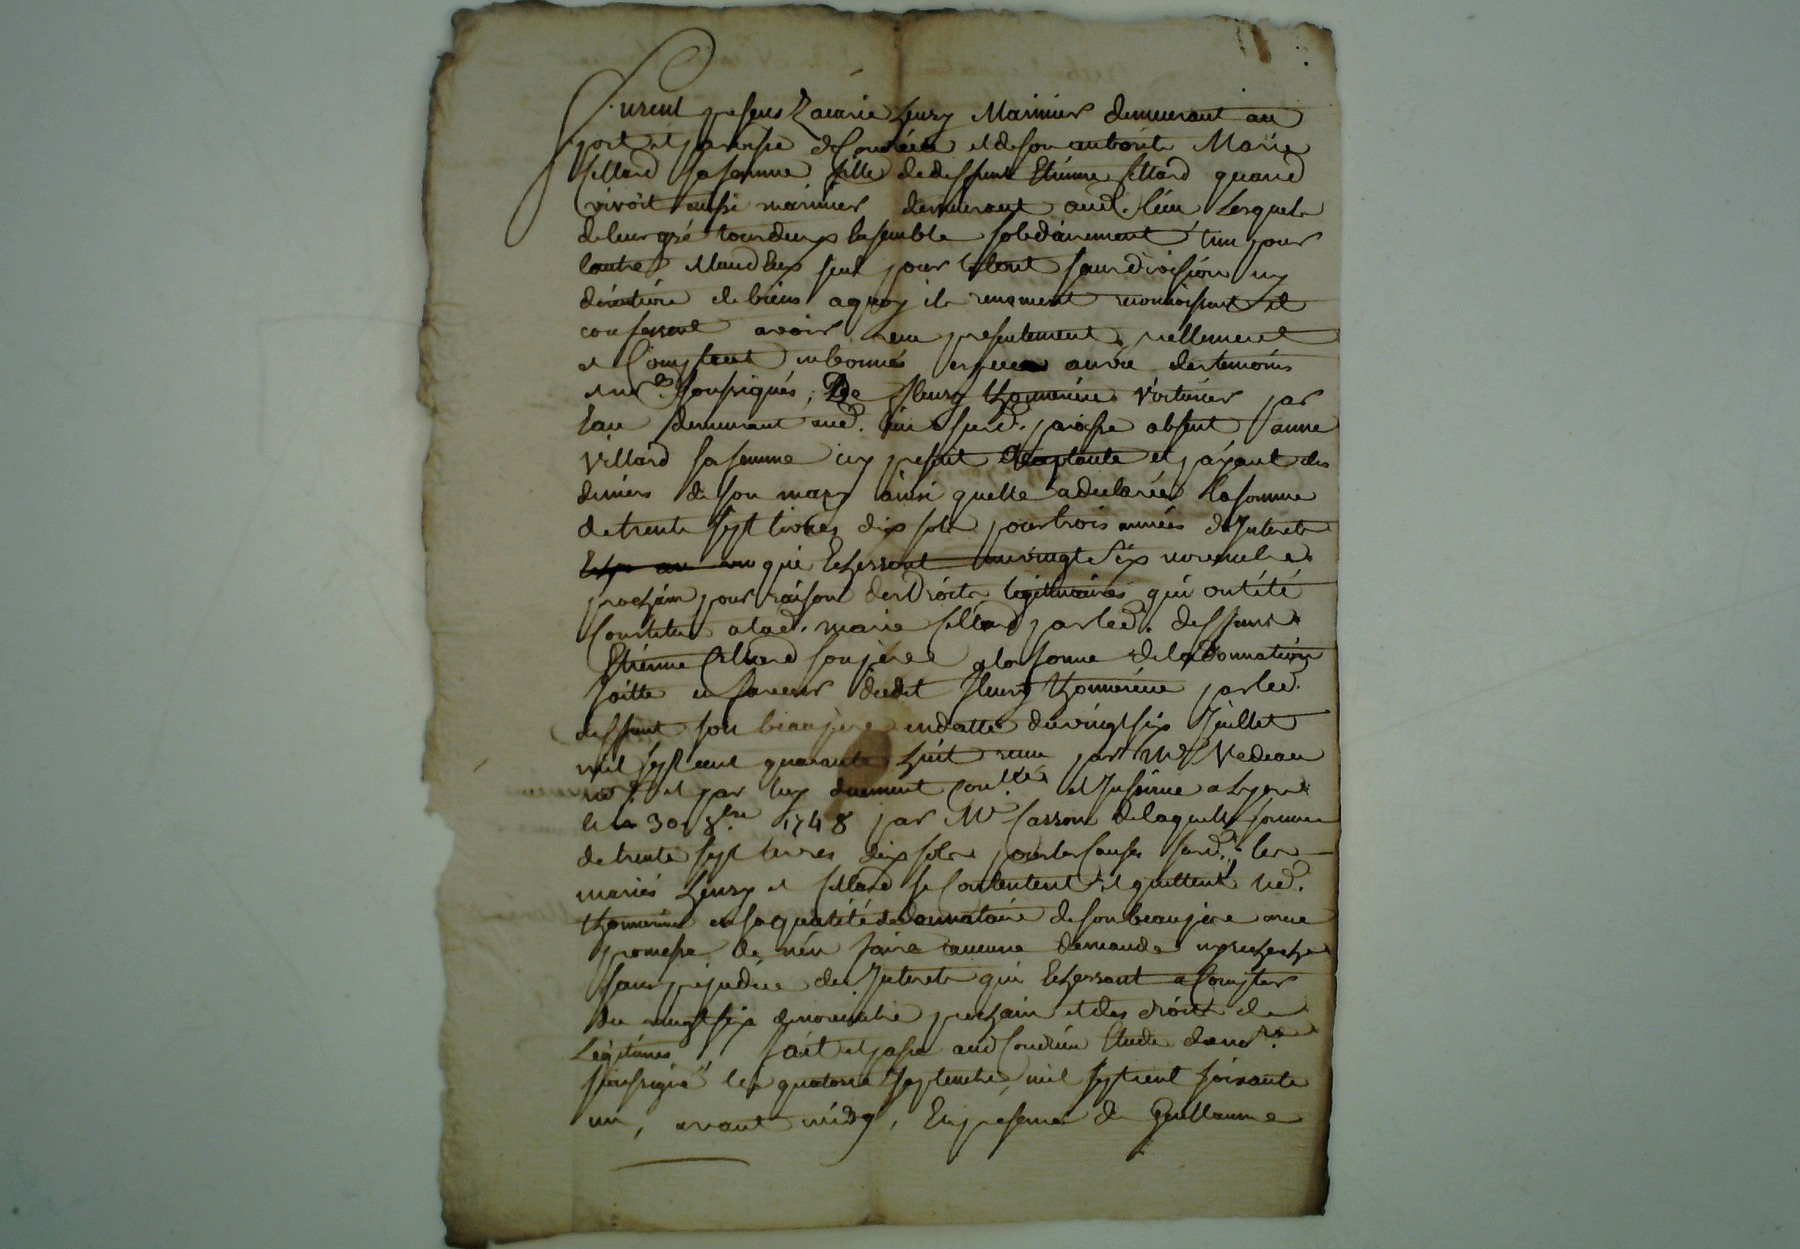 Furent presens Zacarie henry Marinier demeurant au
port et paroisse de Condrieu et de son autorité Marie
fillard sa femme fille de deffunt Etienne fillard quand
vivoit aussi marinier demeurant aud. lieu Lesquels
de leur gré tous deux Ensemble solidairement l'un pour
lautre et lund Eux seul pour letout sans division ny
de biens a quoy ils renoncent reconnoissent et
confessent avoir reçu presentement reellement
et Comptant en bonnes especes au vu des temoins
et nre. soussignés, De fleury thomeriene Voiturier par
Eau demeurant aud. lieu susd. paroisse absent anne
Villard sa femme icy present acceptante et payant des
deniers de son mary ainsi quelle a declarée La somme
de trente sept livres dix sols pour trois années d'Interets
qui Echerront au vingt Six novembre
prochain pour raison des Droits legitimaires qui ont été
Constitué a lad. marie fillard par led. deffunt
Etienne fillard son pere a la forme de la Donnation
faitte en faveur dudit fleury thomeriene par led.
deffunt son beau pere en datte du vingt six Juillet
mil sept cent quarante huit reçu par Me Vedeau
nore. et par luy duement Conllée et Insinué a Lyon
le 30. 8bre. 1748 par Mr Casson de laquelle somme
de trente sept livres dix sols pour les Causes susd. les
mariés henry et fillard se Contentent et quittent led.
thomeriene en sa qualité de donnataire de son beau pere avec
promesse de n'en faire aucune demande ny recherche
sans prejudice des Interets qui Echerront a Compter
du vingt six de novembre prochain et des droits de
Legitimes, fait et passé aud Condrieu Etude du nore.
soussigné le quatorze septembre mil sept cent soixante
un, avant midy, En presence de Guillaume